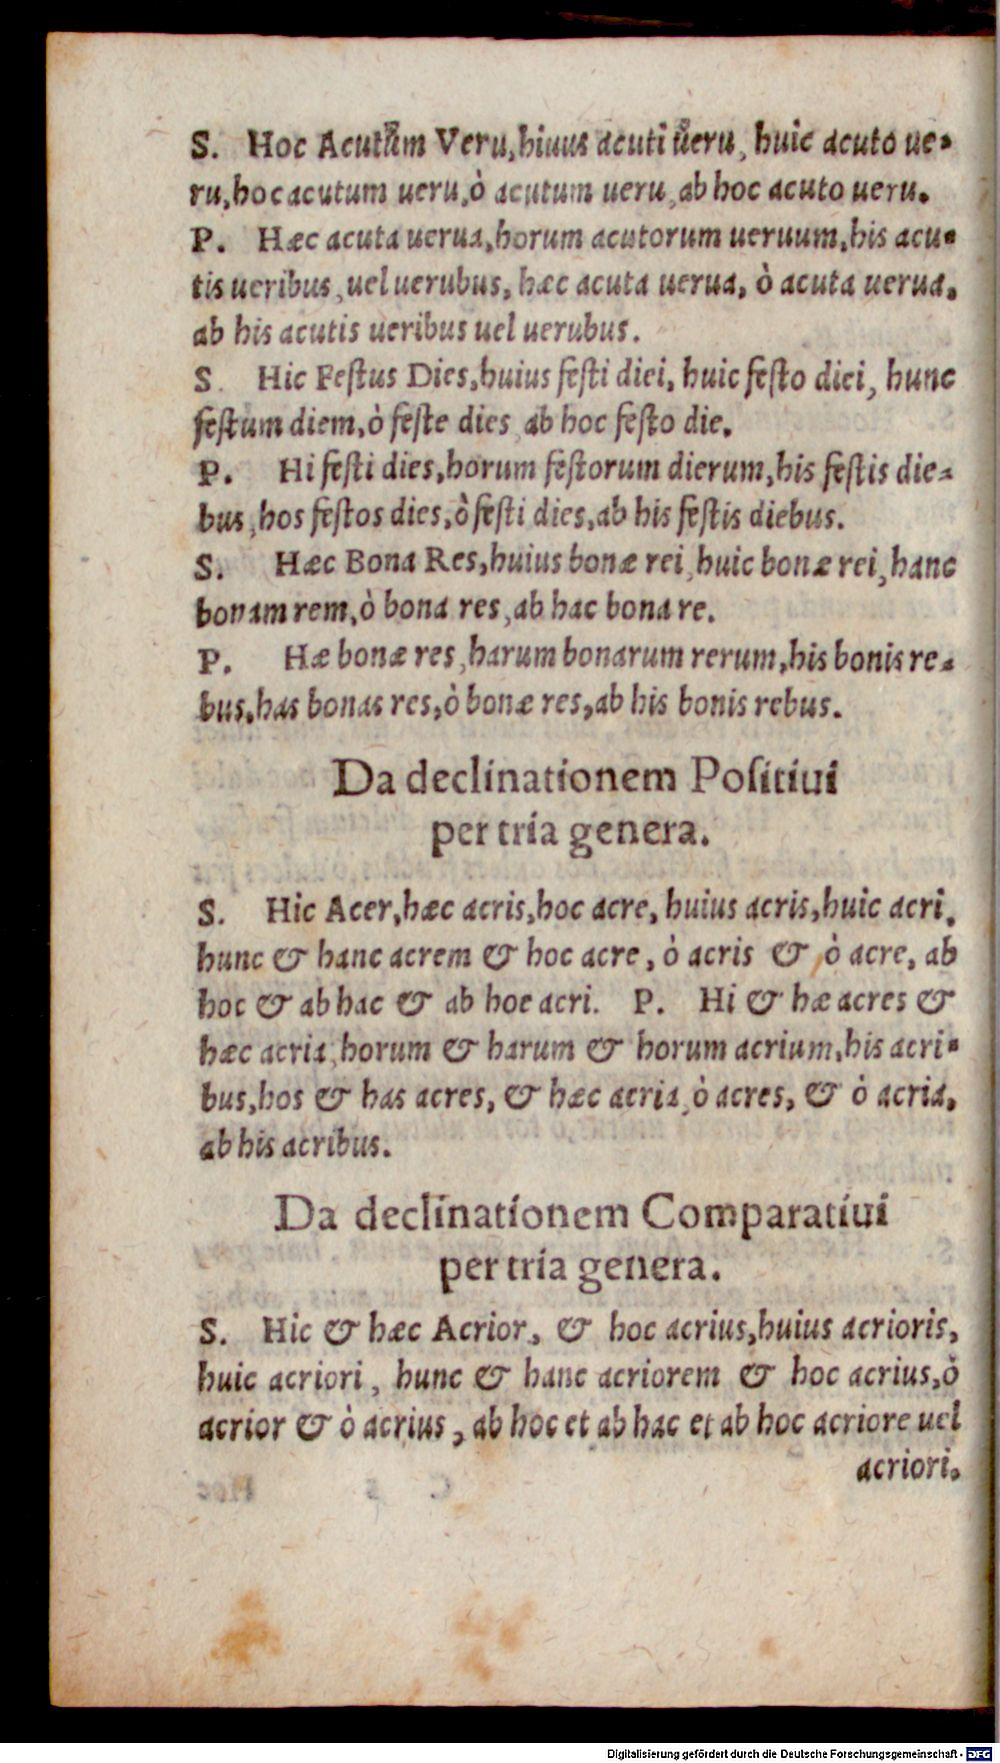 S. Hoc Acutum Veru, hiuus acuti ueru, huic acuto ue-
ru, hoc acutum ueru, ò acutum ueru, ab hoc acuto ueru.
P. Hæc acuta uerua, horum acutorum ueruum, his acu-
tis ueribus, uel uerubus, hæc acuta uerua, ò acuta uerua,
ab his acutis ueribus uel uerubus.
S. Hic Feſtus Dies, huius feſti diei, huic feſto diei, hunc
feſtum diem, ò feſte dies, ab hoc feſto die.
P. Hi feſti dies, horum feſtorum dierum, his feſtis die-
bus, hos feſtos dies, ò feſti dies, ab his feſtis diebus.
S. Hæc Bona Res, huius bonæ rei, huic bonæ rei, hanc
bonam rem, ò bona res, ab hac bona re.
P. Hæ bonæ res, harum bonarum rerum, his bonis re-
bus, has bonas res, ò bonæ res, ab his bonis rebus.
Da declinationem Poſitiui
per tria genera.
S. Hic Acer, hæc acris, hoc acre, huius acris, huic acri,
hunc & hanc acrem & hoc acre, ò acris & ò acre, ab
hoc & ab hac & ab hoc acri. P. Hi & hæ acres &
hæc acria, horum & harum & horum acrium, his acri-
bus, hos & has acres, & hæc acria, ò acres, & ò acria,
ab his acribus.
Da declinationem Comparatiui
per tria genera.
S. Hic & hæc Acrior, & hoc acrius, huius acrioris,
huic acriori, hunc & hanc acriorem & hoc acrius, ò
acrior & ò acrius, ab hoc et ab hac et ab hoc acriore uel
acriori.
Digitalisierung gefördert durch die Deutsche Forschungsgemeinschaft - DFG